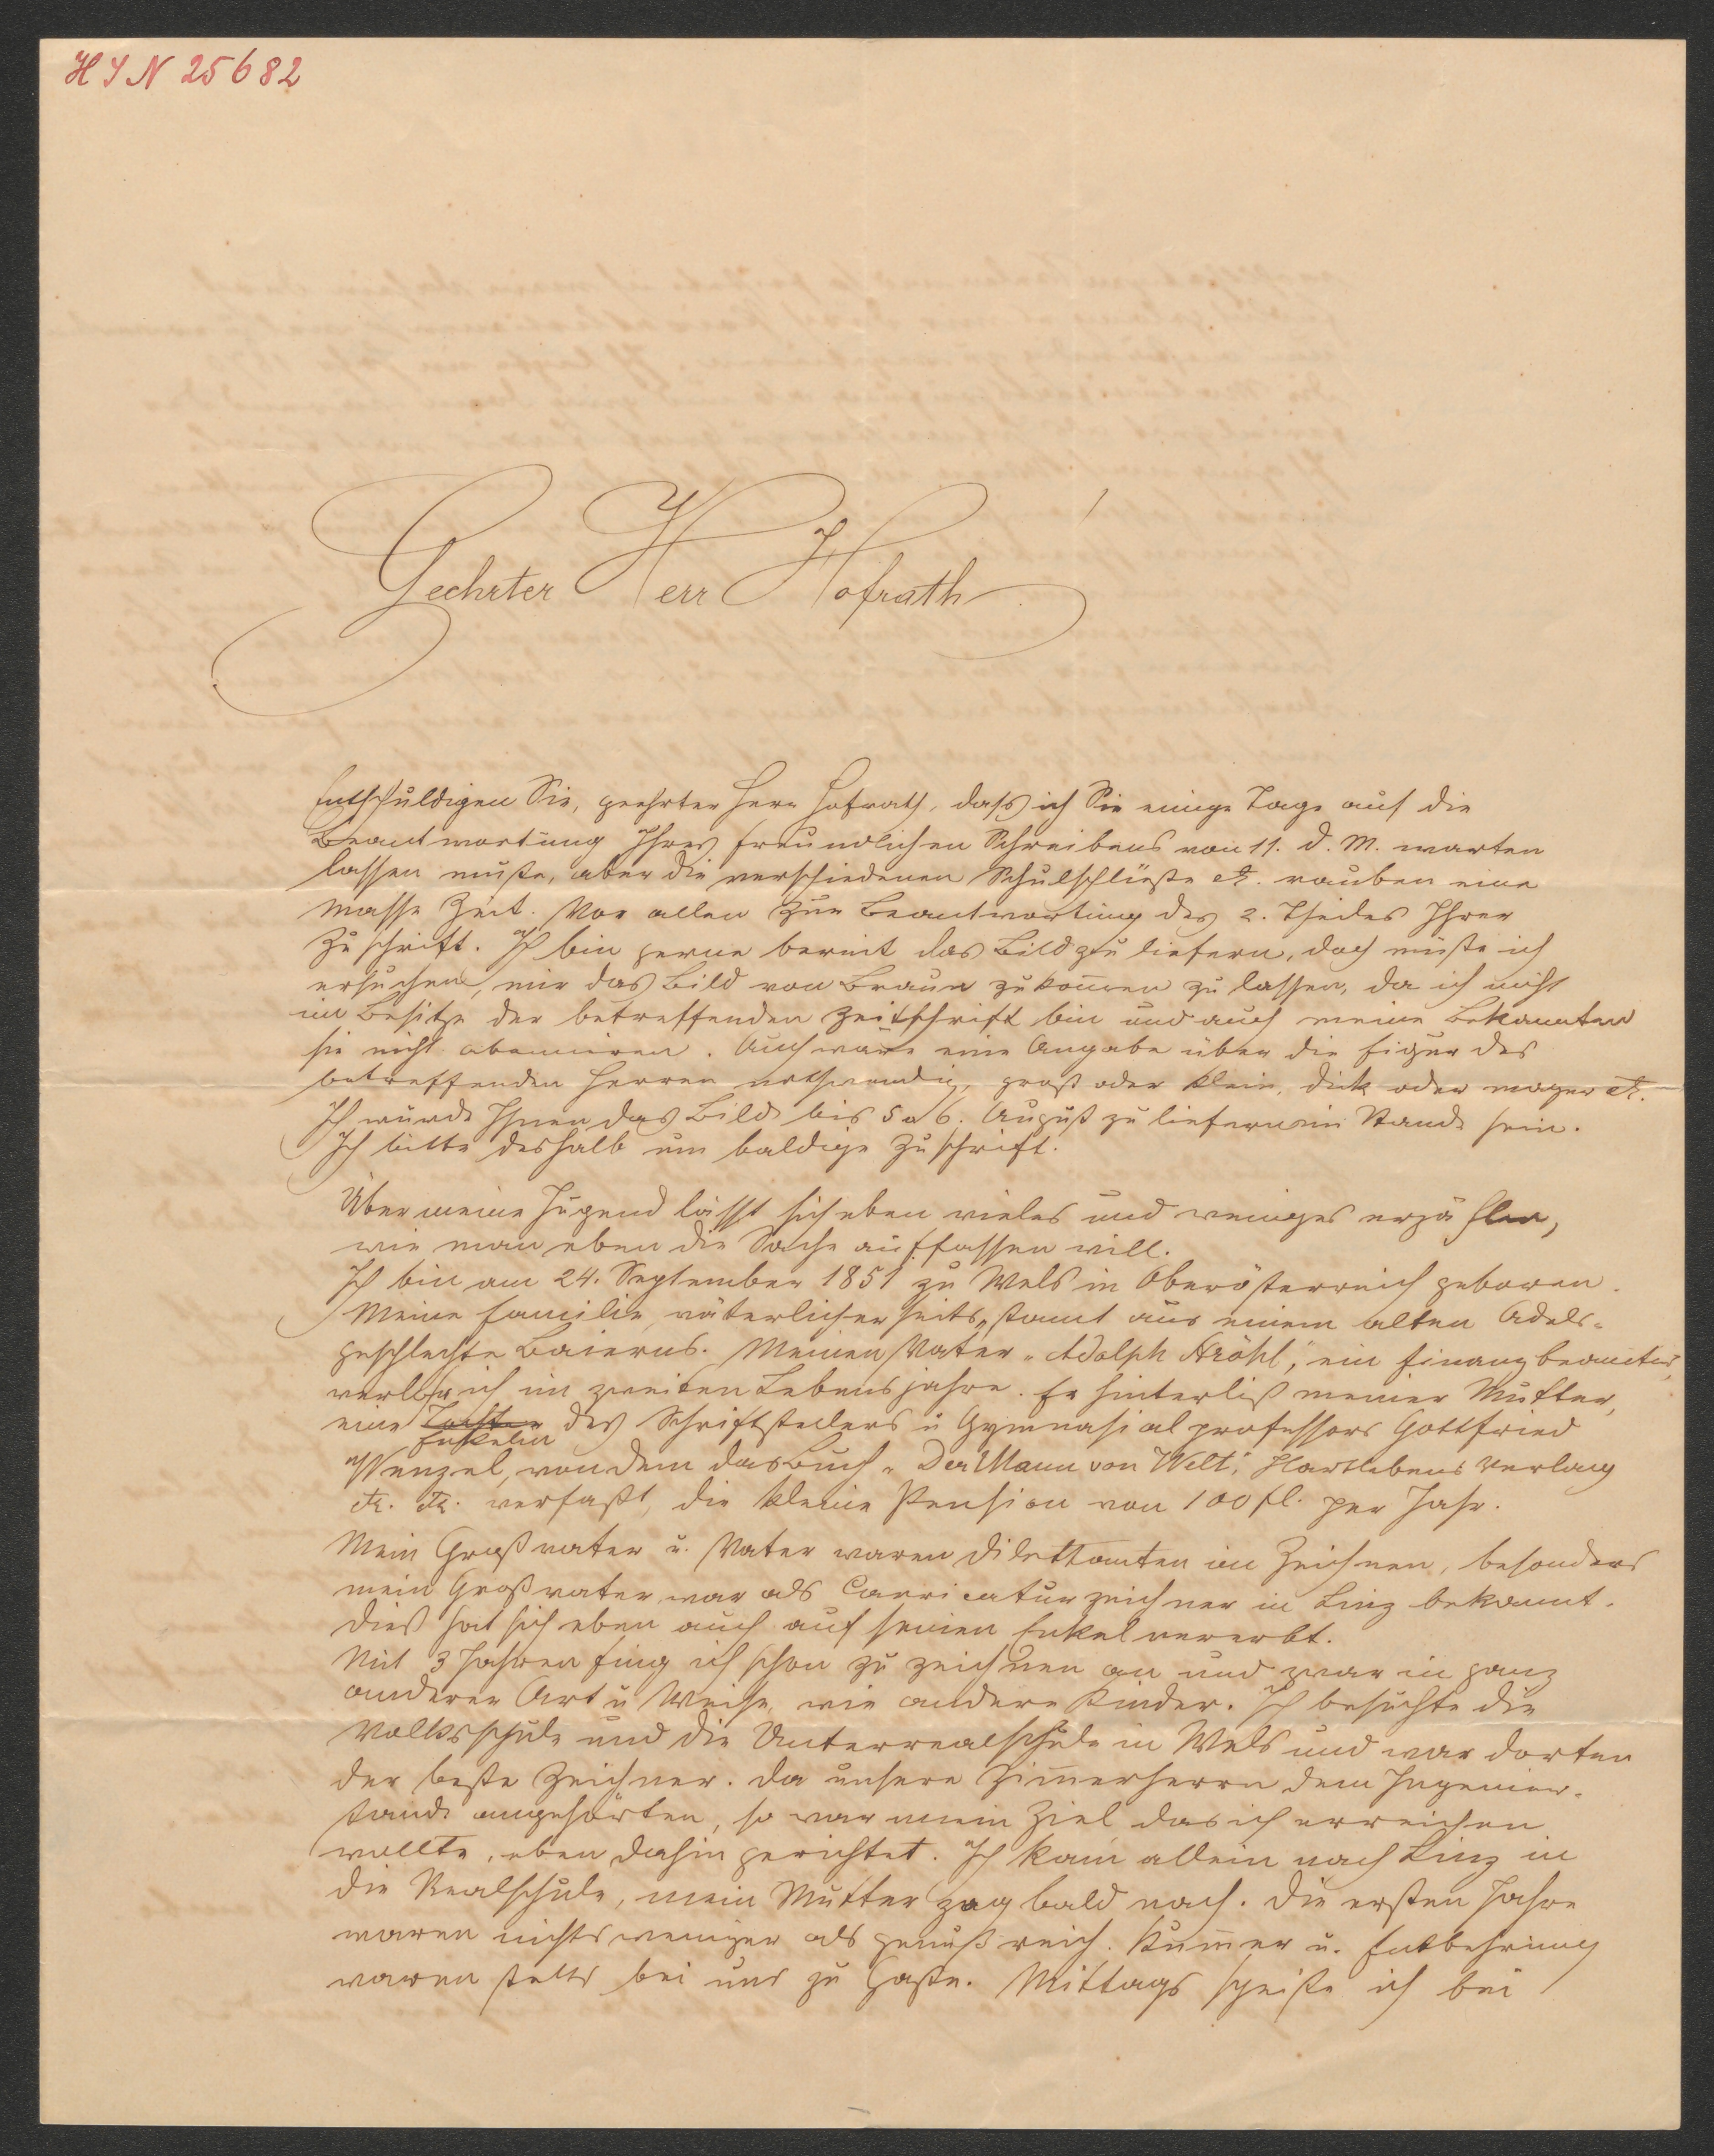 HIN 25682
Geehrter Herr Hofrath!
Entschuldigen Sie, geehrter Herr Hofrath, dass ich Sie einige Tage auf die
Beantwortung Ihres freundlichen Schreibens von 11. d. M. warten
lassen mußte, aber die verschiedenen Schulschlüße etc. rauben eine
Masse Zeit. Vor allen zur Beantwortung des 2. Theiles Ihrer
Zuschrift. Ich bin gerne bereit das Bild zu liefern, doch müßte ich
ersuchen, mir das Bild von Braun zukom̅en zu lassen, da ich nicht
im Besitze der betreffenden Zeitschrift bin und auch meine Bekannten
sie nicht abonniren. Auch wäre eine Angabe über die Figur des
betreffenden Herren nothwendig, groß oder klein, dick oder mager etc.
Ich würde Ihnen das Bild bis 5 o 6. August zu liefern im Stande sein.
Ich bitte deshalb um baldige Zuschrift.
Über meine Jugend lässt sich eben vieles und weniges erzählen,
wie man eben die Sache auffassen will.
Ich bin am 24. September 1851 zu Wels in Oberösterreich geboren.
Meine Familie, väterlicherseits, stamt aus einem alten Adels-
geschlechte Baierns. Meinen Vater „Adolph Ströhl", ein Finanzbeamter,
verlor ich im zweiten Lebensjahre. Er hinterließ meiner Mutter,
eine Tochter des Schriftstellers u Gymnasialprofessors Gottfried
Enkelin
Wenzel, von dem das Buch „Der Mann von Welt", Hartlebens Verlag
etc. etc. verfaßt, die kleine Pension von 100 fl. per Jahr.
Mein Großvater u. Vater waren Dilettanten im Zeichnen, besonders
mein Großvater war als Carricaturzeichner in Linz bekannt.
Dieß hat sich eben auch auf seinen Enkel vererbt.
Mit 3 Jahren fing ich schon zu zeichnen an und zwar in ganz
anderer Art u Weise, wie andere Kinder. Ich besuchte die
Volksschule und die Unterrealschule in Wels und war dorten
der beste Zeichner. Da unsere Zim̅erherrn dem Ingenieur-
stande angehörten, so war mein Ziel das ich erreichen
wollte, eben dahin gerichtet. Ich kam allein nach Linz in
die Realschule, mein Mutter zog bald nach. Die ersten Jahre
waren nichts weniger als genußreich. Kum̅er u. Entbehrung
waren stetts bei uns zu Gaste. Mittags speiste ich bei